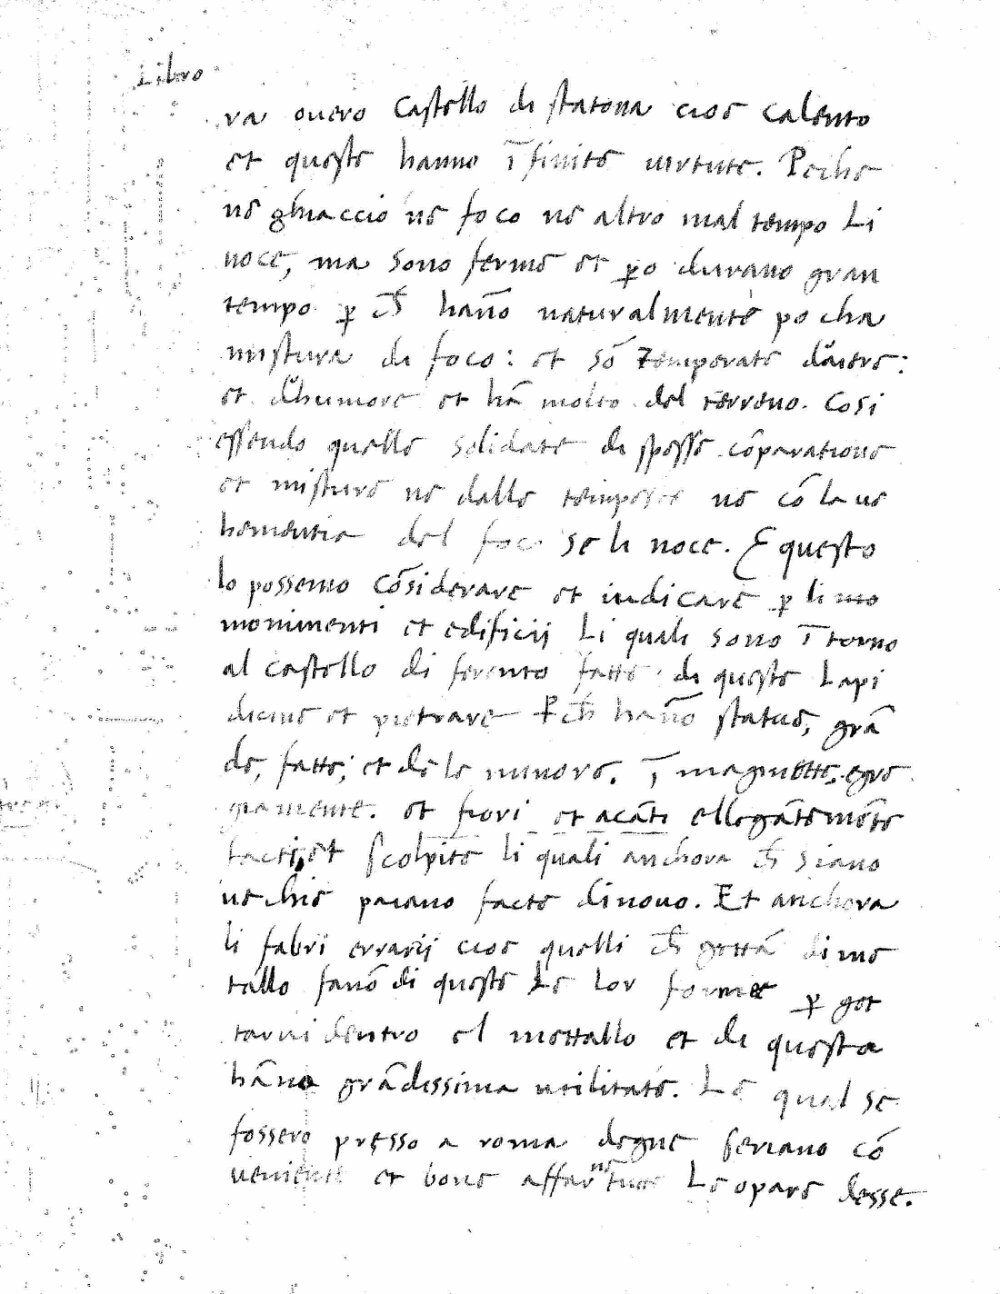 Libro
va overo Castello di statona cioe Calento
et queste hanno ī finite virtute. Perche
ne ghiaccio ne foco ne altro mal tempo li
noce, ma sono ferme et ꝑo durano gran
tempo ꝑ ch̄ han̄o naturalmente pocha
mistura di foco: et sō temperate d'aiere:
et d'humore et hā molto del terreno. Cosi
essendo quelle solidate di spesse cōparatione
et misture ne dalle tempeste ne cō la ve
hementia del foco se li noce. E questo
lo possemo cōsiderare et iudicare ꝑ li mo
monimenti et edificij li quali sono ī torno
al castello di ferento fatte di queste Lapi
dicine et pietrare ꝑch̄ han̄o statue, grā
de, fatte, et de le minore. ī magnette, egre
giamente. et fiori et acāti ellegātemēte
facti, et scolpite li quali anchora ch̄ siano
vechie paiano facte di novo. Et anchora
li fabri errarij cioe quelli ch̄ gettā di me
tallo fanō di queste le lor forme ꝑ get
tarvi dentro el mettallo et di questa
hāno grādissima utilitate. Le qual se
fossero presso a roma degne seriano cō
veniente et bone affar ne tutte Le opare desse.